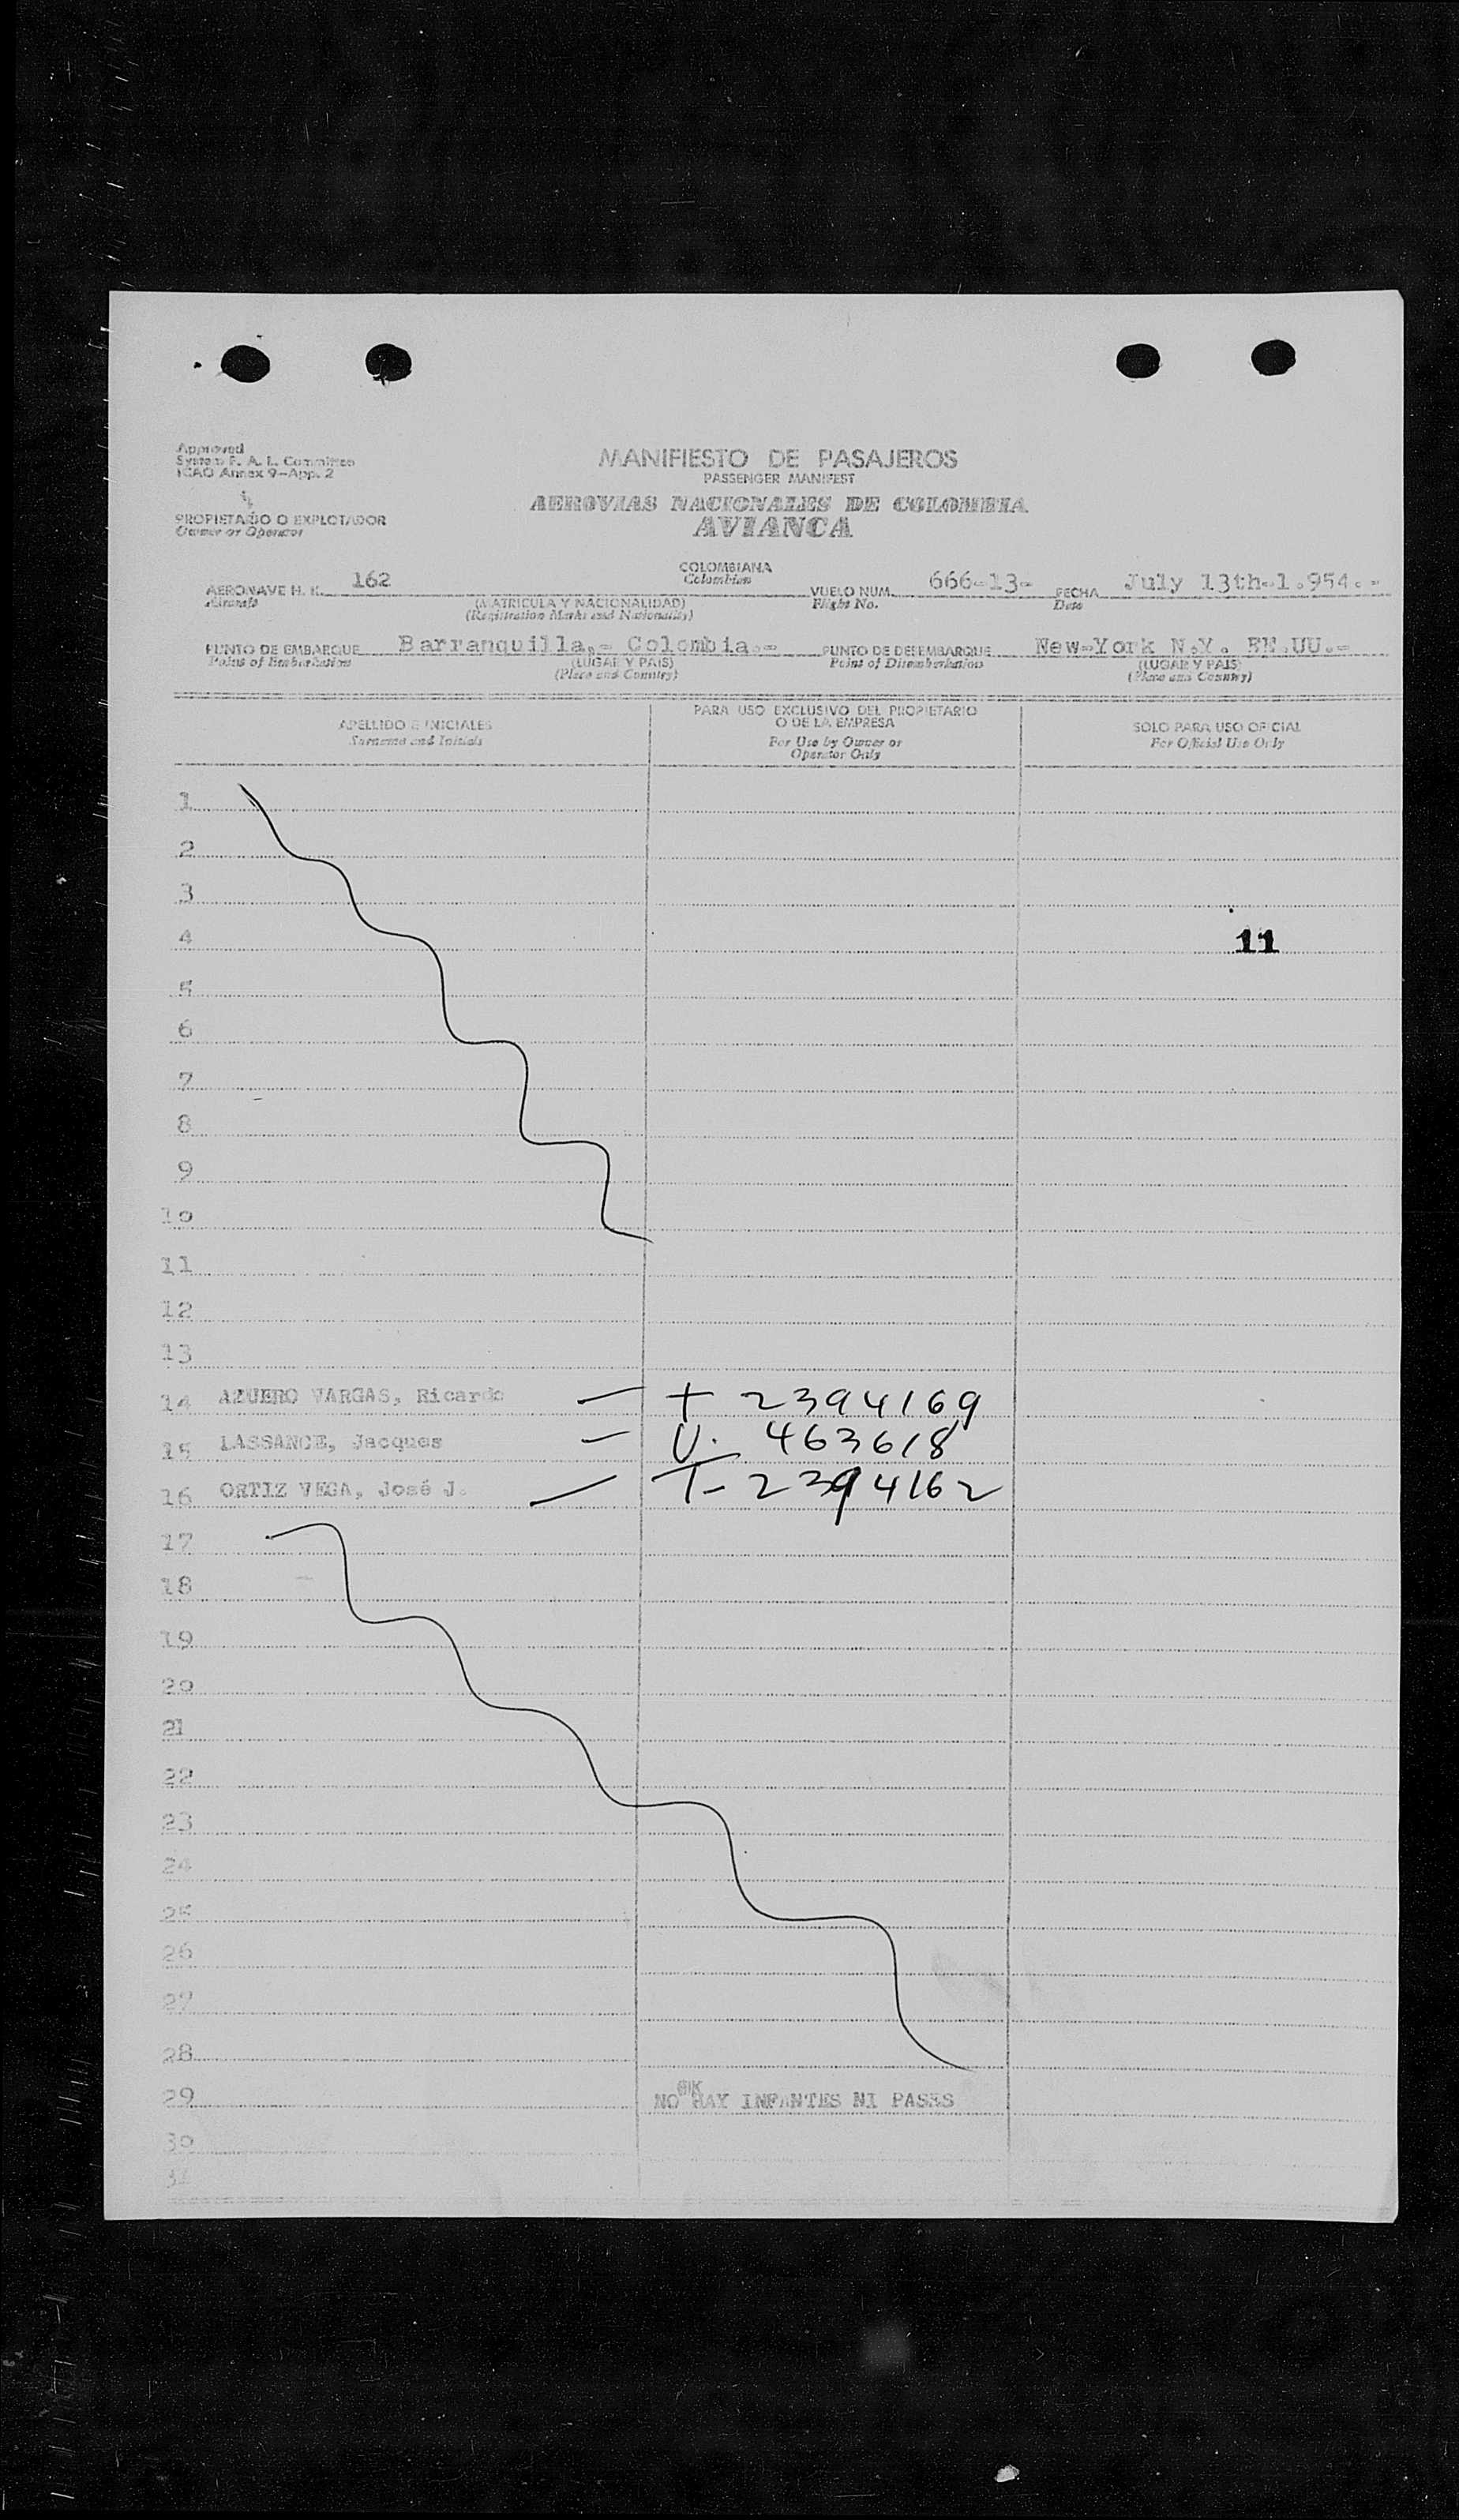 Approved
System F. A. L. Committee
ICAO Annex 9-App. 2
MANIFIESTO DE PASAJEROS
PASSENGER MANIFEST
AEROVIAS NACIONALES DE COLOMBIA
AVIANCA
PROPIETARIO O EXPLOTADOR
Owner or Operator
AERONAVE H. K. 162 COLOMBIANA VUELO NUM. 666-13- FECHA July 13th-1.954.-
Aircraft Colombian Flight No. Date
(MATRICULA Y NACIONALIDAD)
(Registration Marks and Nationality)
PUNTO DE EMBARQUE Barranquilla,- Colombia.- PUNTO DE DESEMBARQUE New-York N.Y. EE.UU.-
Point of Embarkation (LUGAR Y PAIS) Point of Disembarkation (LUGAR Y PAIS)
(Place and Country) (Place and Country)
APELLIDO E INICIALES PARA USO EXCLUSIVO DEL PROPIETARIO SOLO PARA USO OFICIAL
Surname and Initials O DE LA EMPRESA For Official Use Only
For Use by Owner or
Operator Only
1
2
3
4 11
5
6
7
8
9
10
11
12
13
14 AZUERO VARGAS, Ricardo — + 2394169
15 LASSANCE, Jacques — U. 463618
16 ORTIZ VEGA, José J. — T- 2394162
17
18
19
20
21
22
23
24
25
26
27
28
29 NO HAY INFANTES NI PASES
30
31